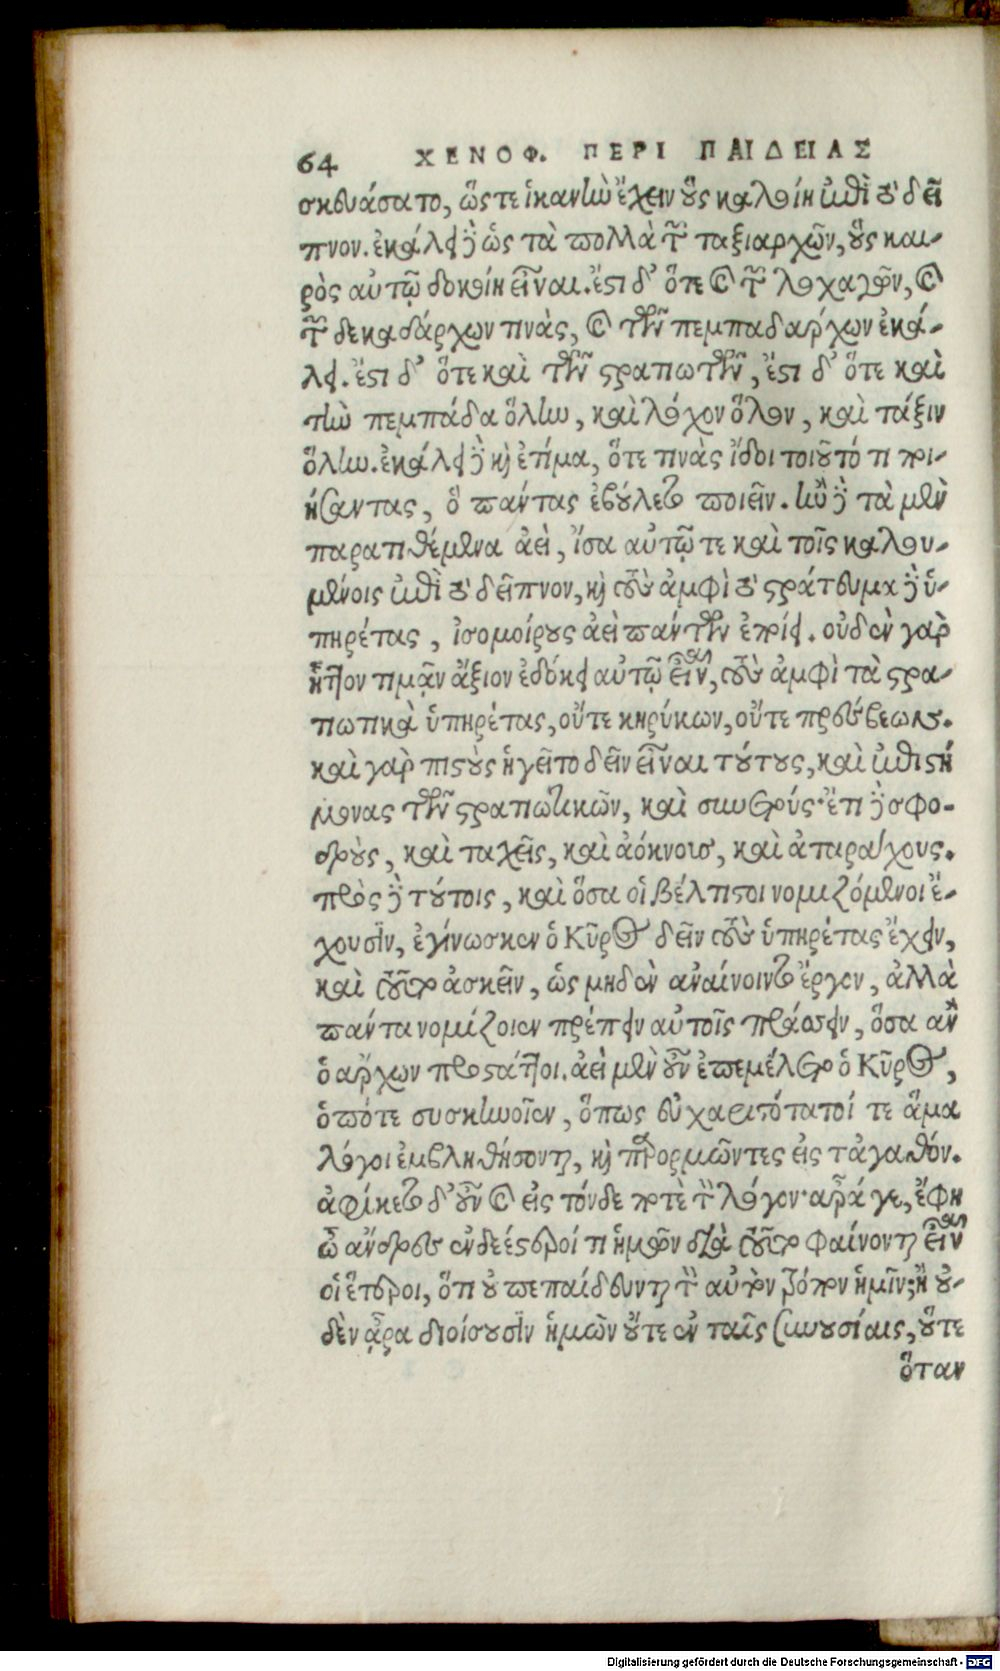 64 ΧΕΝΟΦ. ΠΕΡΙ ΠΑΙΔΕΙΑΣ
σκευάσατο, ὥςτε ἱκανὴν ἔχειν οὓς καλοίη ἐπὶ τὸ δεῖ
πνον. ἐκάλει δὲ ὡς τὰ πολλὰ τῶν ταξιαρχῶν, οὓς και-
ρὸς αὐτῷ δοκοίη εἶναι. ἔστι δ᾽ ὅτε καὶ τῶν λοχαγῶν, καὶ
τῶν δεκαδάρχων τινὰς, καὶ τῶν πεμπαδάρχων ἐκά-
λει. ἔστι δ᾽ ὅτε καὶ τῶν στρατιωτῶν, ἔστι δ᾽ ὅτε καὶ
τὴν πεμπάδα ὅλην, καὶ λόχον ὅλον, καὶ τάξιν
ὅλην. ἐκάλει δὲ καὶ ἐτίμα, ὅτε τινὰς ἴδοι τοιοῦτό τι ποι-
ήσαντας, ὃ πάντας ἐβούλετο ποιεῖν. ἦν δὲ τὰ μὲν
παρατιθέμενα ἀεὶ, ἴσα αὐτῷ τε καὶ τοῖς καλου-
μένοις ἐπὶ τὸ δεῖπνον, καὶ τοὺς ἀμφὶ τὸ στράτευμα δὲ ὑ-
πηρέτας, ἰσομοίρους ἀεὶ πάντων ἐποίει. οὐδὲν γὰρ
ἧττον τιμᾷν ἄξιον ἐδόκει αὐτῷ εἶναι, τοὺς ἀμφὶ τὰ στρα-
τιωτικὰ ὑπηρέτας, οὔτε κηρύκων, οὔτε πρέσβεων.
καὶ γὰρ πιστοὺς ἡγεῖτο δεῖν εἶναι τούτους, καὶ ἐπιστή
μονας τῶν στρατιωτικῶν, καὶ συνετούς· ἔτι δὲ σφο-
δροὺς, καὶ ταχεῖς, καὶ ἀόκνους, καὶ ἀταράχους.
πρὸς δὲ τούτοις, καὶ ὅσα οἱ βέλτιστοι νομιζόμενοι ἔ-
χουσιν, ἐγίνωσκεν ὁ Κῦρος δεῖν τοὺς ὑπηρέτας ἔχειν,
καὶ τοῦτο ἀσκεῖν, ὡς μηδὲν ἀναίνοιντο ἔργον, ἀλλὰ
πάντα νομίζοιεν πρέπειν αὐτοῖς πράσσειν, ὅσα ἂν
ὁ ἄρχων προστάττοι. ἀεὶ μὲν οὖν ἐπεμέλετο ὁ Κῦρος,
ὁπότε συσκηνοῖεν, ὅπως εὐχαριστότατοί τε ἅμα
λόγοι ἐμβληθήσονται, καὶ παρορμῶντες εἰς τἀγαθόν.
ἀφίκετο δ᾽ οὖν καὶ εἰς τόνδε ποτὲ τὸν λόγον· ἆρά γε, ἔφη
ὦ ἄνδρες ἐνδεέστεροί τι ἡμῶν διὰ τοῦτο φαίνονται εἶναι
οἱ ἕτεροι, ὅτι οὐ πεπαίδευνται τὸν αὐτὸν τρόπον ἡμῖν; ἢ οὐ-
δὲν ἄρα διοίσουσιν ἡμῶν οὔτε ἐν ταῖς συνουσίαις, οὔτε
ὅταν
Digitalisierung gefördert durch die Deutsche Forschungsgemeinschaft - DFG